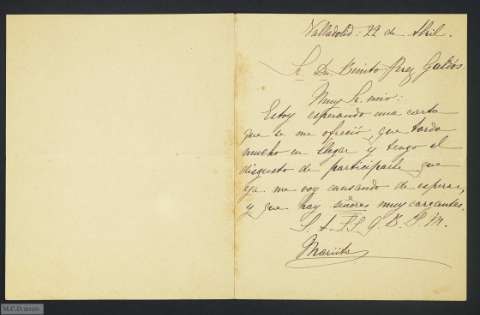 Valladolid: 22 de Abril.
Sr. Dn. Benito Perez Galdós
Muy Sr. mio:
Estoy esperando una carta
que se me ofreció, que tarda
mucho en llegar y tengo el
disgusto de participarle que
ya me voy cansando de esperar,
y que hay señores muy cargantes.
S. S. Q. B. S. M.
M.C.D. 2020